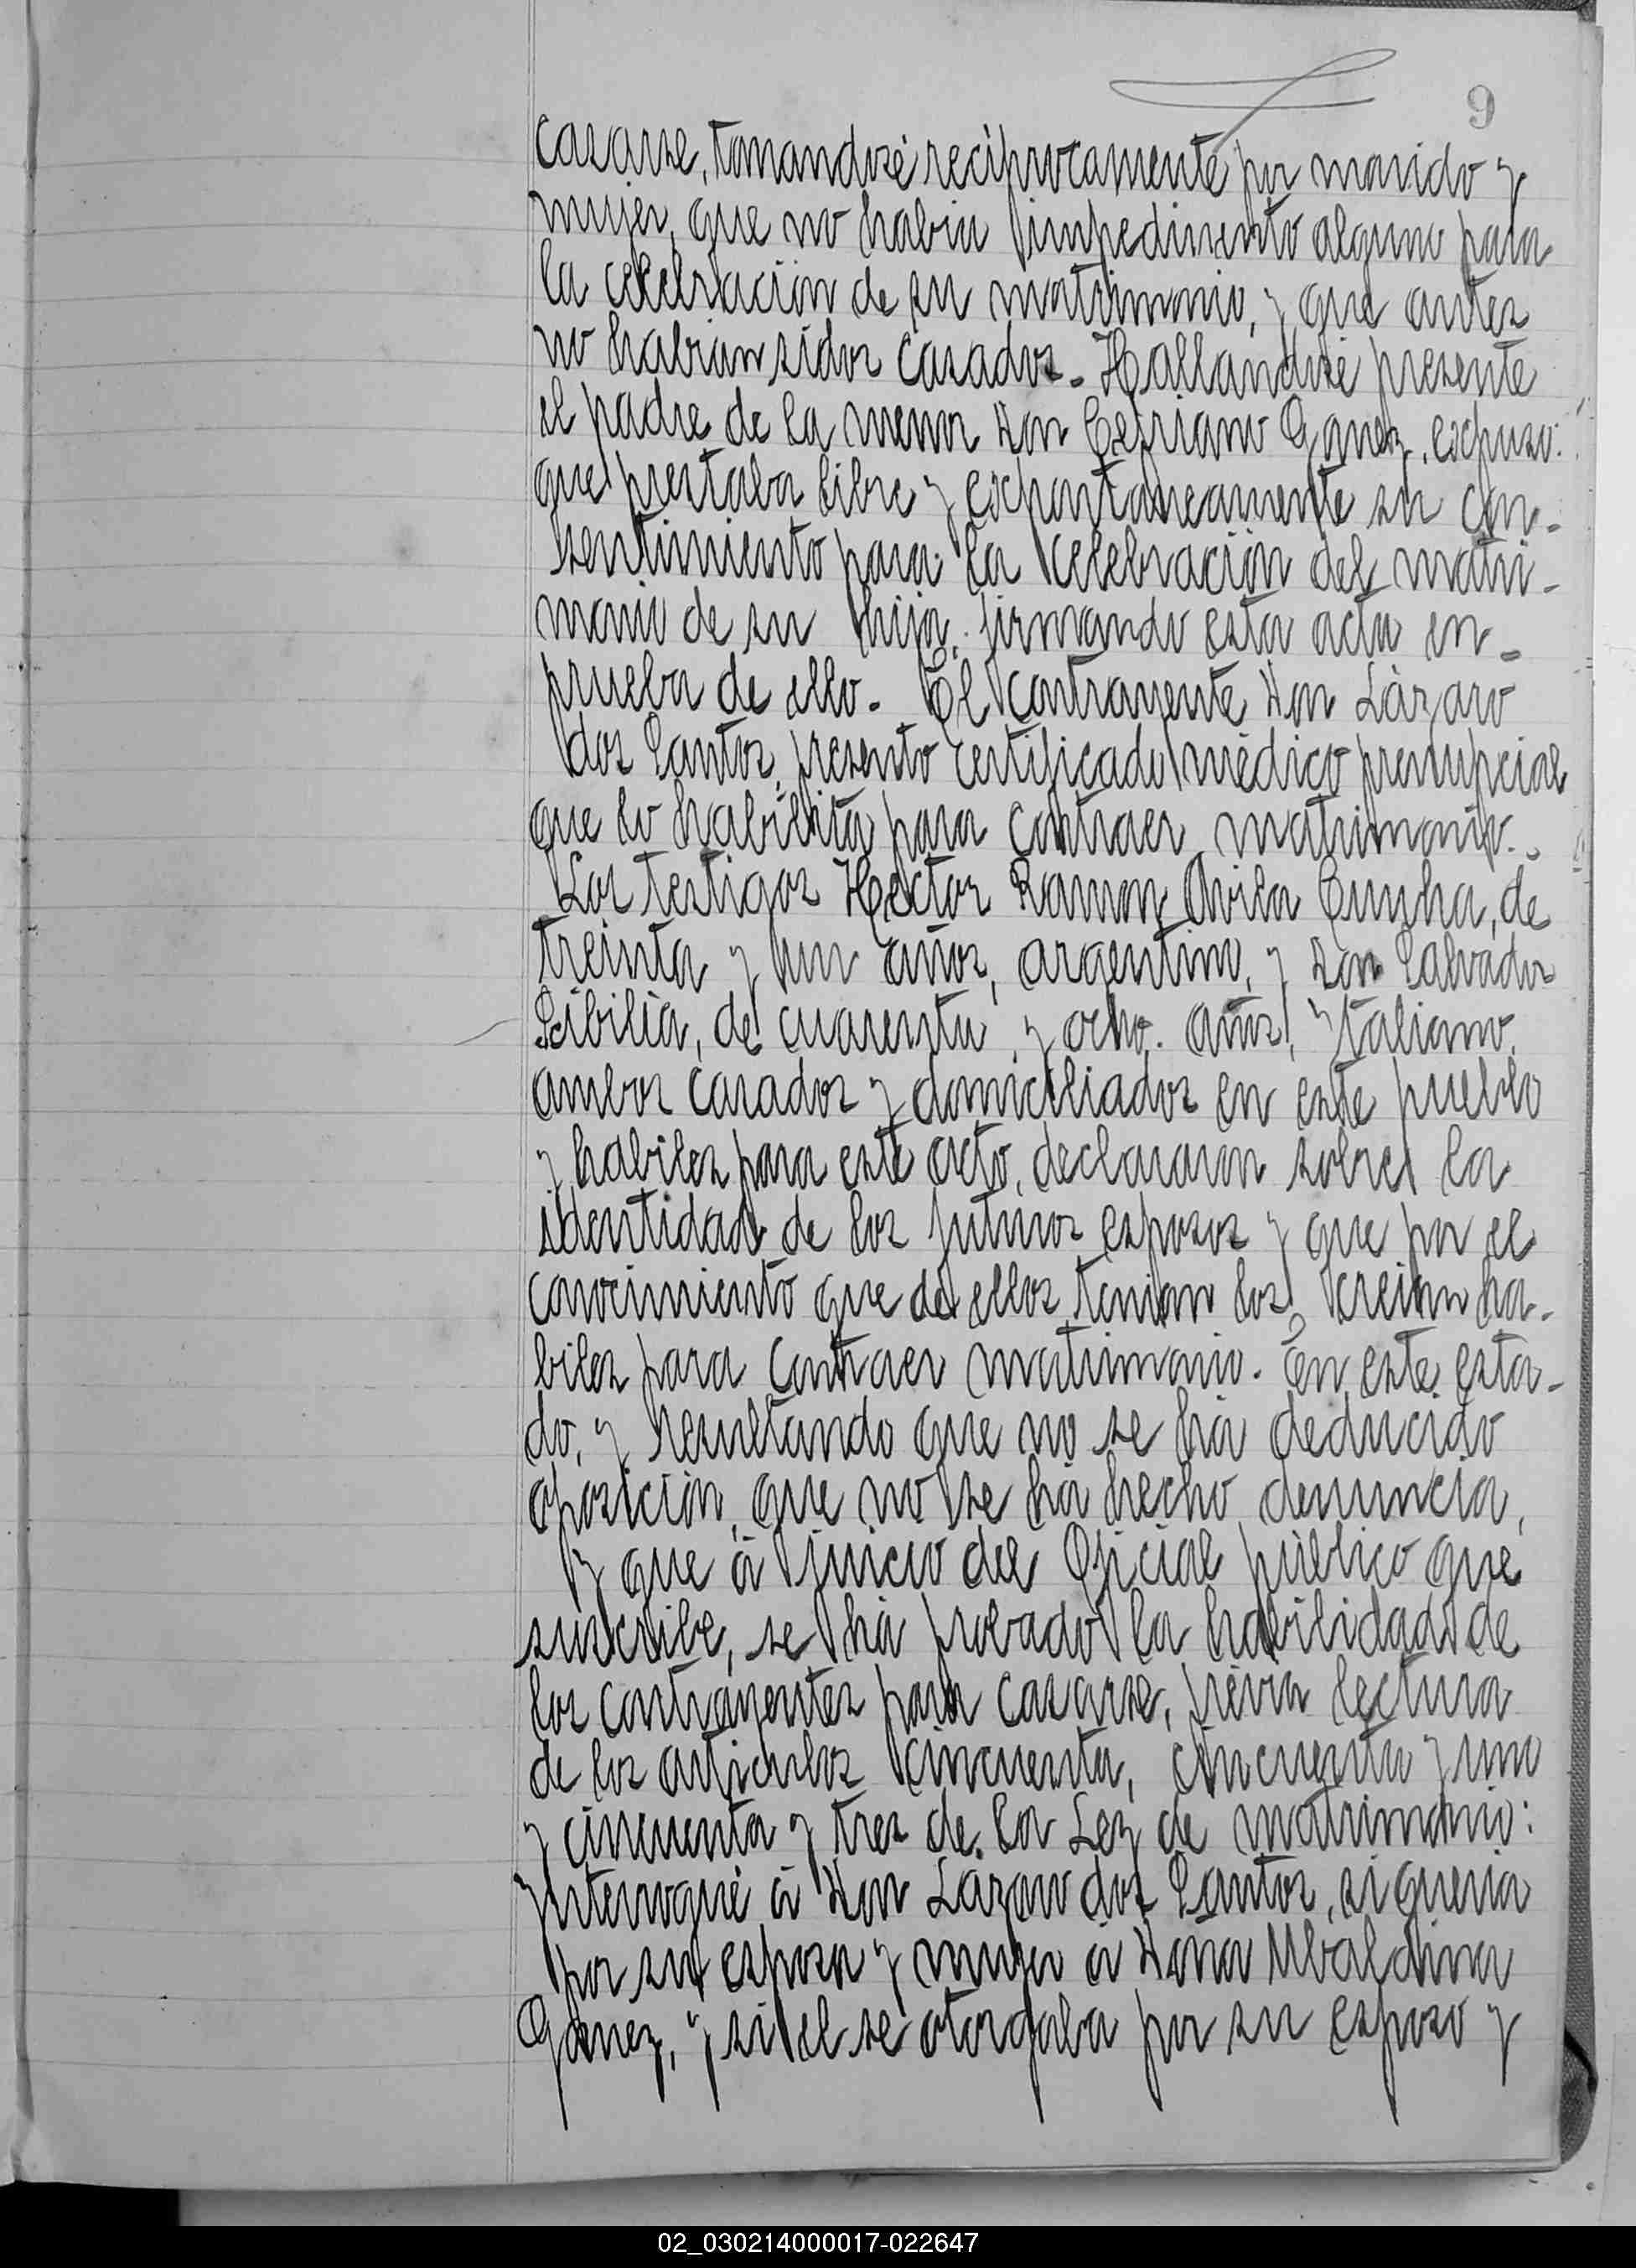 9
casarse, tomandose reciprocamente por marido y
mujer, que no habia impedimento alguno para
la celebración de su matrimonio, y que antes
no habian sidos casados. Hallandose presente
el padre de la menor Don Cipriano Gomez, espuso:
que prestaba libre y espontaneamente su con-
sentimiento para la celebración del matri-
monio de su hija, firmando esta acta en
prueba de ello. El contrayente Don Lázaro
dos Santos, presento certificado médico prenupcial
que lo habilita para contraer matrimonio.
Los testigos Hector Ramon Avila Cunha, de
treinta y un años, argentino, y Don Salvador
Scibilia, de cuarenta y ocho años, ytaliano,
ambos casados y domiciliados en este pueblo
y habiles para este acto, declararon sobre la
identidad de los futuros esposos y que por el
conocimiento que de ellos tenian los creian ha-
biles para contraer matrimonio. En este esta-
do, y resultando que no se ha deducido
oposición, que no se há hecho denuncia,
y que á juicio del Oficial público que
suscribe, se há probado la habilidad de
los contrayentes para casarse, prévia lectura
de los articulos cincuenta, cincuenta y uno
y cincuenta y tres de la Ley de matrimonio:
ynterrogué á Don Lazaro dos Santos, si queria
por su esposa y mujer á Dona Ubaldina
Gomez, y si el se otorgaba por su esposo y
02_030214000017-022647